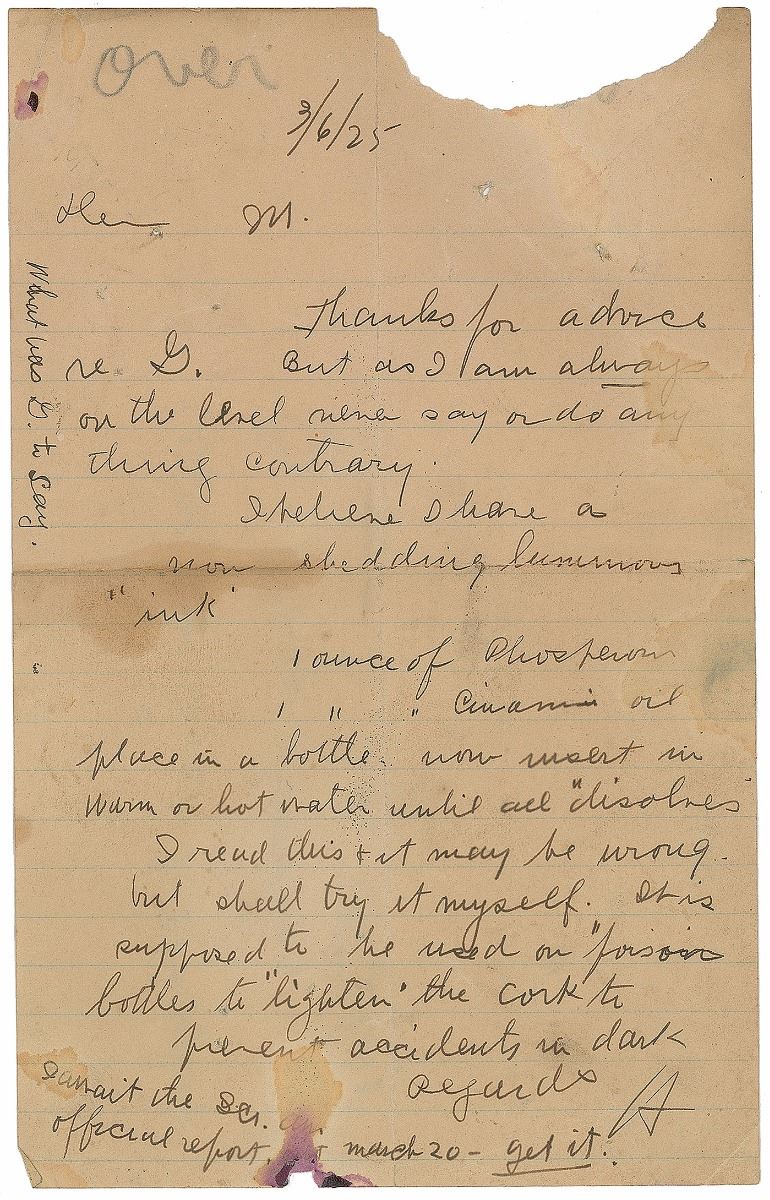 Over
3/6/25
Dear M.
Thanks for advice
re G. But as I am always
on the level never say or do any
thing contrary.
I believe I have a
non shedding luminous
"ink"
1 ounce of Phosperous
1 " " Cinamin oil
place in a bottle. now insert in
warm or hot water until all "disolves"
I read this & it may be wrong.
but shall try it myself. It is
supposed to be used on "poison
bottles to "lighten" the cork to
prevent accidents in dark
Regards
H
I await the Sci.
official report, march 20 - get it.
What was G. to say.